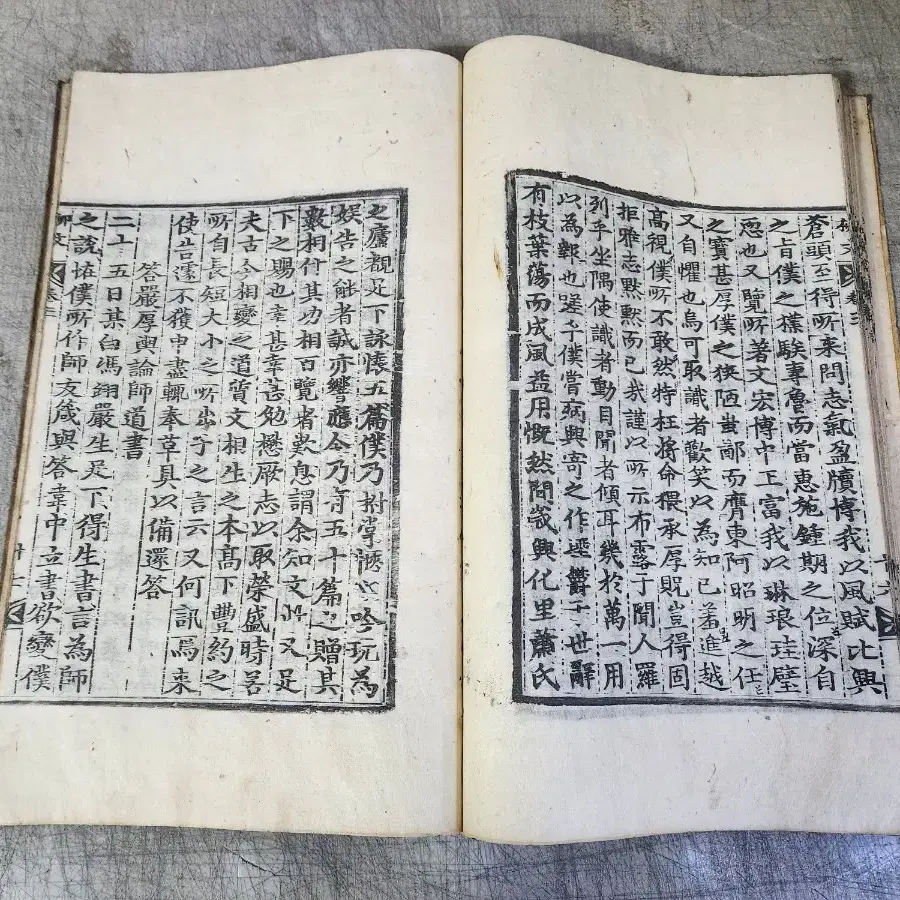 柳文 卷三 十六
蒼頭至得所來問志氣盈牘博我以風賦比興
之旨僕之樸騃專魯而當惠施鍾期之位深自
恧也又覽所著文宏博中正富我以琳琅珪璧
之寶甚厚僕之狹陋蚩鄙而膺東阿昭明之任
又自懼也烏可取識者歡笑以為知己羞進越
高視僕所不敢然特枉將命猥承厚貺豈得固
拒雅志默默而已哉謹以所示布露于聞人羅
列乎坐隅使識者動目聞者傾耳幾於萬一用
以為報也嗟乎僕嘗病興寄之作堙鬱于世辭
有枝葉蕩而成風益用慨然間歲興化里蕭氏
之廬觀足下詠懷五篇僕乃拊掌愜心吟玩為
娛告之能者誠亦響應今乃有五十篇之贈其
數相什其功相百覽者歎息謂余知文此又足
下之賜也幸甚幸甚勉懋厥志以取榮盛時若
夫古今相變之道質文相生之本高下豐約之
所自長短大小之所出子之言云又何訊焉來
使告遽不獲申盡輒奉草具以備還答
答嚴厚輿論師道書
二十五日某白馮翊嚴生足下得生書言為師
之說怪僕所作師友箴與答韋中立書欲變僕
柳文 卷三 十七